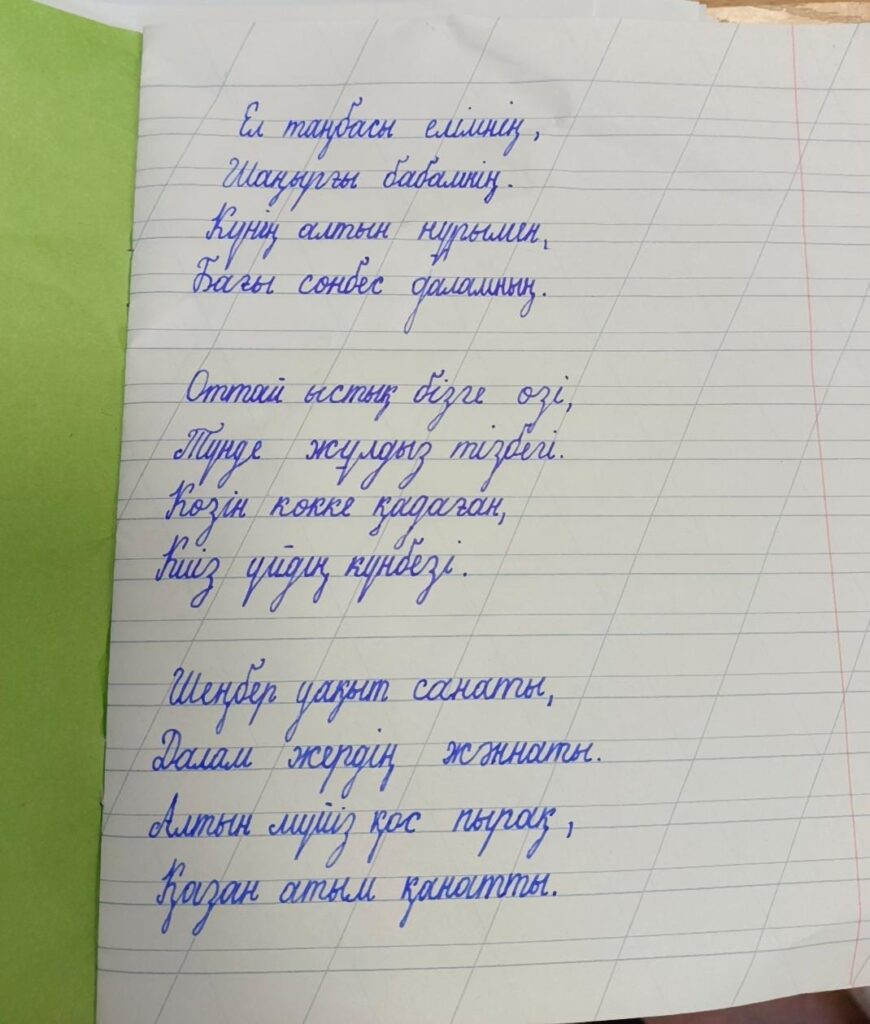 Ел таңбасы елімнің,
Шаңырғы бабамнің.
Күнің алтын нұрымен,
Бағы сөнбес даламның.
Оттай ыстық бізге өзі,
Түнде жұлдыз тізбегі.
Көзін көкке қадаған,
Киіз үйдің күнбезі.
Шеңбер уақыт санаты,
Далам жердің жәннаты.
Алтын мүйіз қос пырақ,
Қазан атым қанатты.